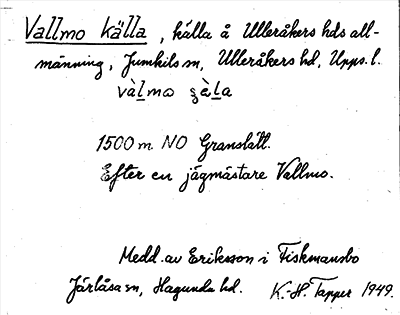 Vallmo källa, källa å Ulleråkers hds all-
männing, Jumkils sn, Ulleråkers hd, Upps. l.
vàl̲mo ʂäl̲a
1500 m NO Granslätt.
Efter en jägmästare Vallmo.
Medd. av Eriksson i Fiskmansbo
Järlåsa sn, Hagunda hd. K.-H. Tapper 1949.